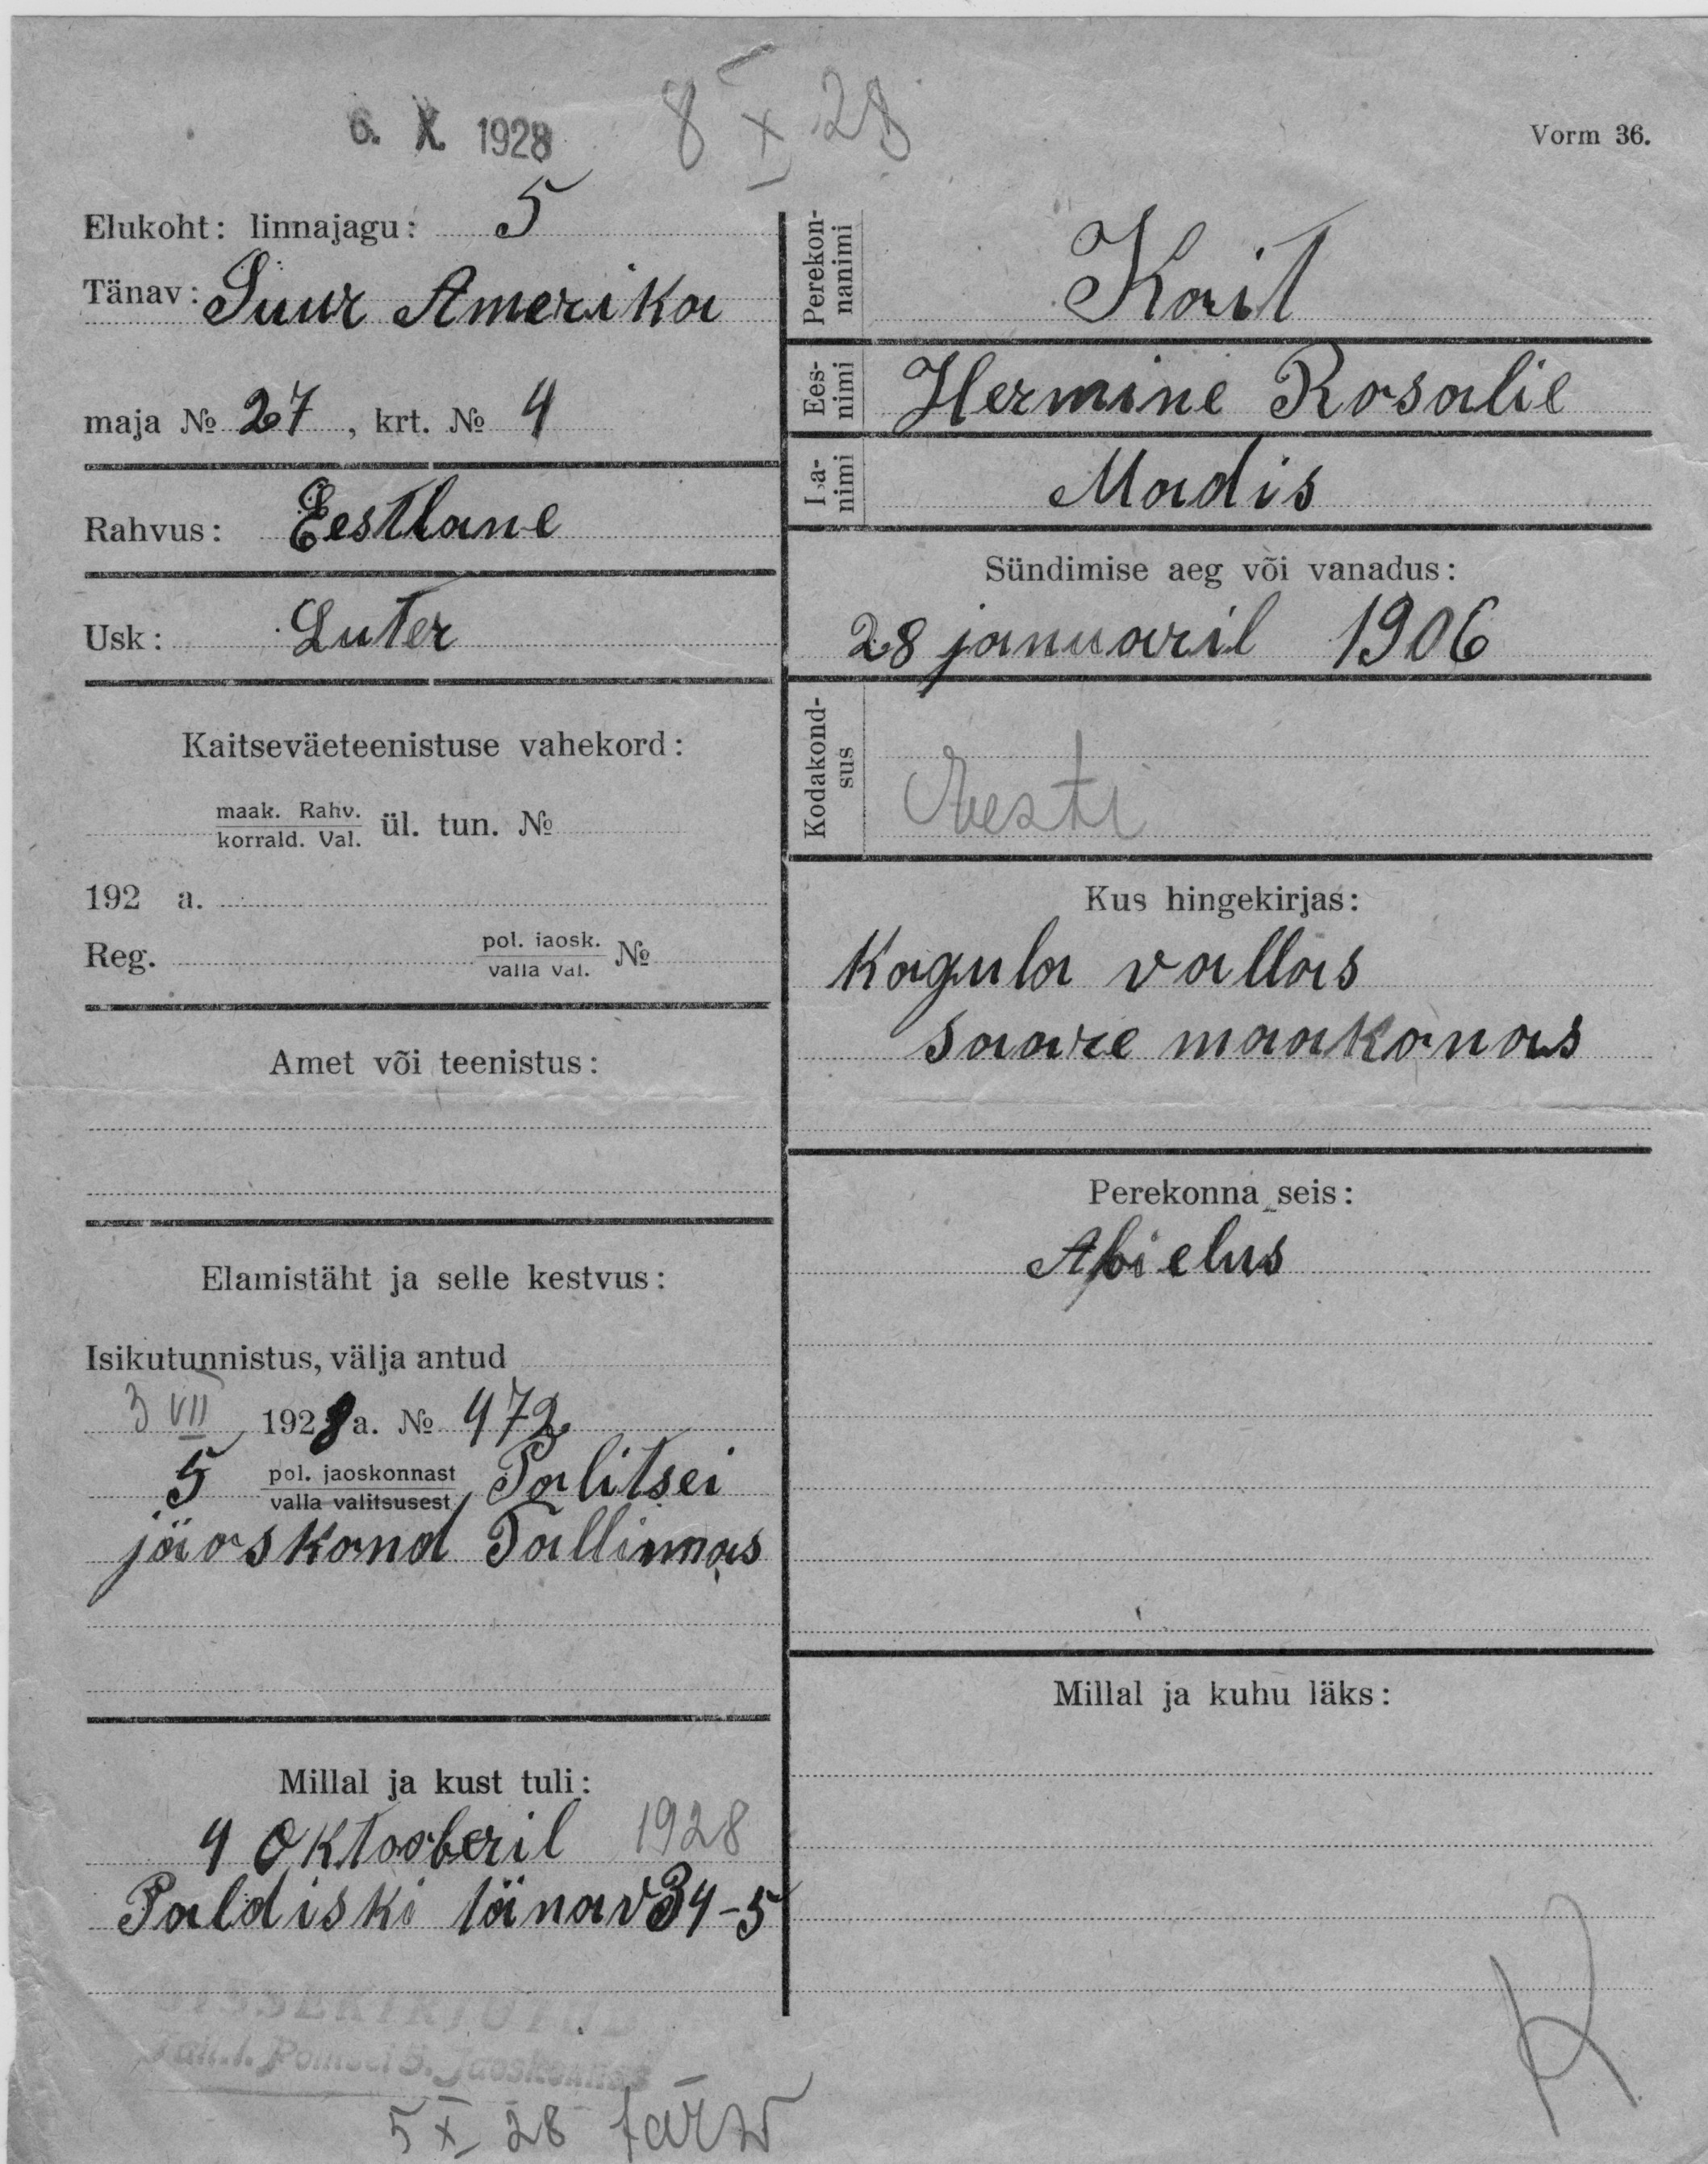 6. X. 1928
8 X 28
Vorm 36.
Elukoht: linnajagu: 5
Tänav: Suur Amerika
maja № 27, krt. № 4
Rahvus: Eestlane
Usk: Luter
Kaitseväeteenistuse vahekord:
maak. Rahv.
korrald. Val. ül. tun. №
192 a.
Reg. pol. jaosk.
valla val. №
Amet või teenistus:
Elamistäht ja selle kestvus:
Isikutunnistus, välja antud
3 VII 1928 a. № 472
5 pol. jaoskonnast Politsei
valla valitsusest
jäoskond Tallinnas
Millal ja kust tuli:
4 Oktooberil 1928
Paldiski tänav 34-5
SISSEKIRJUTUD
Tall. l. Politsei 5. jaoskonnas
5 X 28
Perekon-
nanimi
Kait
Ees-
nimi
Hermine Rosalie
Isa-
nimi
Madis
Sündimise aeg või vanadus:
28 januaril 1906
Kodakond-
sus
Eesti
Kus hingekirjas:
Kogula vallas
saare maakonas
Perekonna seis:
Abielus
Millal ja kuhu läks:
K